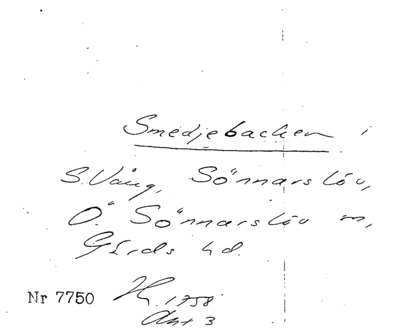 Smedjebacken i
S. Vång, Sönnarslöv,
Ö. Sönnarslöv sn,
Gärds hd.
Nr 7750 H. 1758
Akt 3